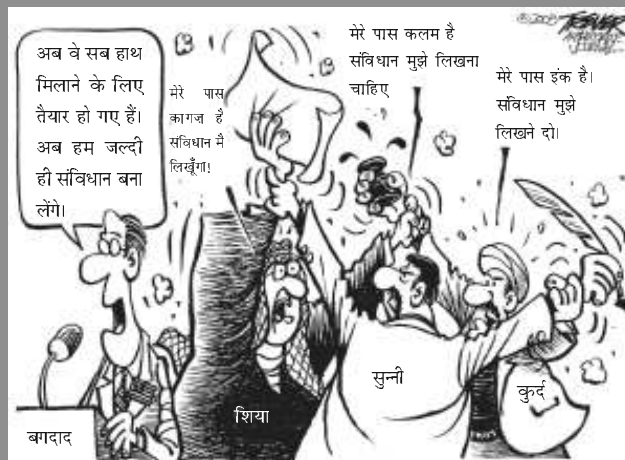 अब वे सब हाथ
मिलाने के लिए
तैयार हो गए हैं।
अब हम जल्दी
ही संविधान बना
लेंगे।
मेरे पास
कागज़ है
संविधान मैं
लिखूँगा!
मेरे पास कलम है
संविधान मुझे लिखना
चाहिए
मेरे पास इंक है।
संविधान मुझे
लिखने दो।
बगदाद
शिया
सुन्नी
कुर्द